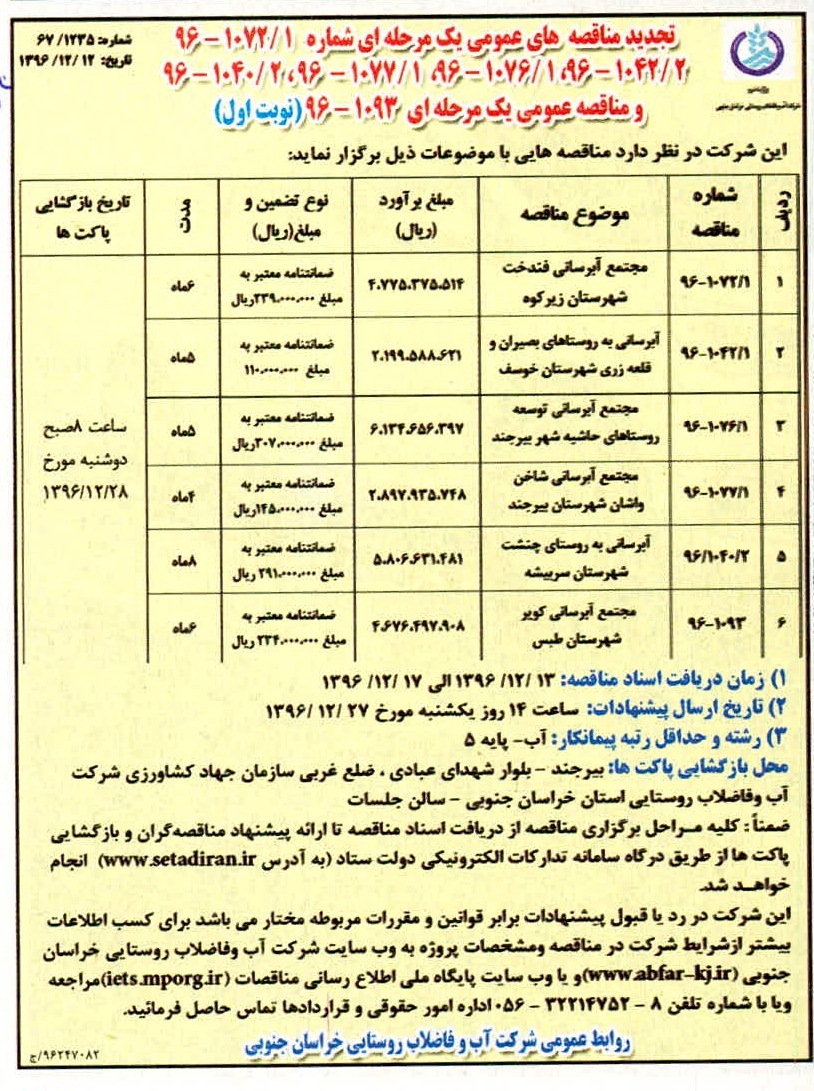 شماره: ۶۷/۱۲۳۵
تاریخ: ۱۳۹۶/۱۲/۱۲
تجدید مناقصه های عمومی یک مرحله ای شماره ۹۶-۱۰۷۲/۱
۹۶-۱۰۴۲/۲، ۹۶-۱۰۷۶/۱، ۹۶-۱۰۷۷/۱، ۹۶-۱۰۴۰/۲
و مناقصه عمومی یک مرحله ای ۹۶-۱۰۹۳ (نوبت اول)
این شرکت در نظر دارد مناقصه هایی با موضوعات ذیل برگزار نماید:
ردیف | شماره مناقصه | موضوع مناقصه | مبلغ برآورد (ریال) | نوع تضمین و مبلغ(ریال) | مدت | تاریخ بازگشایی پاکت ها
۱ | ۹۶-۱۰۷۲/۱ | مجتمع آبرسانی فندخت شهرستان زیرکوه | ۴.۷۷۵.۳۷۵.۵۱۴ | ضمانتنامه معتبر به مبلغ ۲۳۹.۰۰۰.۰۰۰ریال | ۶ماه
۲ | ۹۶-۱۰۴۲/۱ | آبرسانی به روستاهای بصیران و قلعه زری شهرستان خوسف | ۲.۱۹۹.۵۸۸.۶۲۱ | ضمانتنامه معتبر به مبلغ ۱۱۰.۰۰۰.۰۰۰ | ۵ماه
۳ | ۹۶-۱۰۷۶/۱ | مجتمع آبرسانی توسعه روستاهای حاشیه شهر بیرجند | ۶.۱۳۴.۶۵۶.۳۹۷ | ضمانتنامه معتبر به مبلغ ۳۰۷.۰۰۰.۰۰۰ریال | ۵ماه
۴ | ۹۶-۱۰۷۷/۱ | مجتمع آبرسانی شاخن واشان شهرستان بیرجند | ۲.۸۹۷.۹۳۵.۷۴۸ | ضمانتنامه معتبر به مبلغ ۱۴۵.۰۰۰.۰۰۰ریال | ۴ماه
۵ | ۹۶/۱۰۴۰/۲ | آبرسانی به روستای چنشت شهرستان سربیشه | ۵.۸۰۶.۶۳۱.۴۸۱ | ضمانتنامه معتبر به مبلغ ۲۹۱.۰۰۰.۰۰۰ ریال | ۸ماه
۶ | ۹۶-۱۰۹۳ | مجتمع آبرسانی کویر شهرستان طبس | ۴.۶۷۶.۴۹۷.۹۰۸ | ضمانتنامه معتبر به مبلغ ۲۳۴.۰۰۰.۰۰۰ ریال | ۶ماه
ساعت ۸صبح
دوشنبه مورخ
۱۳۹۶/۱۲/۲۸
۱) زمان دریافت اسناد مناقصه: ۱۳ /۱۲/ ۱۳۹۶ الی ۱۷ /۱۲/ ۱۳۹۶
۲) تاریخ ارسال پیشنهادات: ساعت ۱۴ روز یکشنبه مورخ ۲۷ /۱۲ /۱۳۹۶
۳) رشته و حداقل رتبه پیمانکار: آب- پایه ۵
محل بازگشایی پاکت ها: بیرجند - بلوار شهدای عبادی ، ضلع غربی سازمان جهاد کشاورزی شرکت
آب وفاضلاب روستایی استان خراسان جنوبی - سالن جلسات
ضمناً: کلیه مـراحل برگزاری مناقصه از دریافت اسناد مناقصه تا ارائه پیشنهاد مناقصه‌گران و بازگشایی
پاکت ها از طریق درگاه سامانه تدارکات الکترونیکی دولت ستاد (به آدرس www.setadiran.ir) انجام
خواهـد شد.
این شرکت در رد یا قبول پیشنهادات برابر قوانین و مقررات مربوطه مختار می باشد برای کسب اطلاعات
بیشتر ازشرایط شرکت در مناقصه ومشخصات پروژه به وب سایت شرکت آب وفاضلاب روستایی خراسان
جنوبی (www.abfar-kj.ir)و یا وب سایت پایگاه ملی اطلاع رسانی مناقصات (iets.mporg.ir)مراجعه
ویا با شماره تلفن ۸ - ۳۲۲۱۴۷۵۲ - ۰۵۶ اداره امور حقوقی و قراردادها تماس حاصل فرمائید.
روابط عمومی شرکت آب و فاضلاب روستایی خراسان جنوبی
۹۶۲۴۷۰۸۲/ج